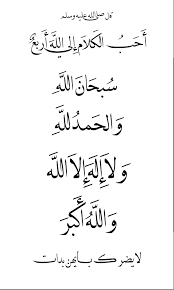 قال صلى الله عليه وسلم
أَحَبُّ الكَلَامِ إِلَى اللَّهِ أَرْبَعٌ
سُبْحَانَ اللَّهِ
وَالحَمْدُ للَّهِ
وَلَا إِلَهَ إِلَّا اللَّه
وَاللَّهُ أَكْبَر
لا يضرك بأيهن بدأت